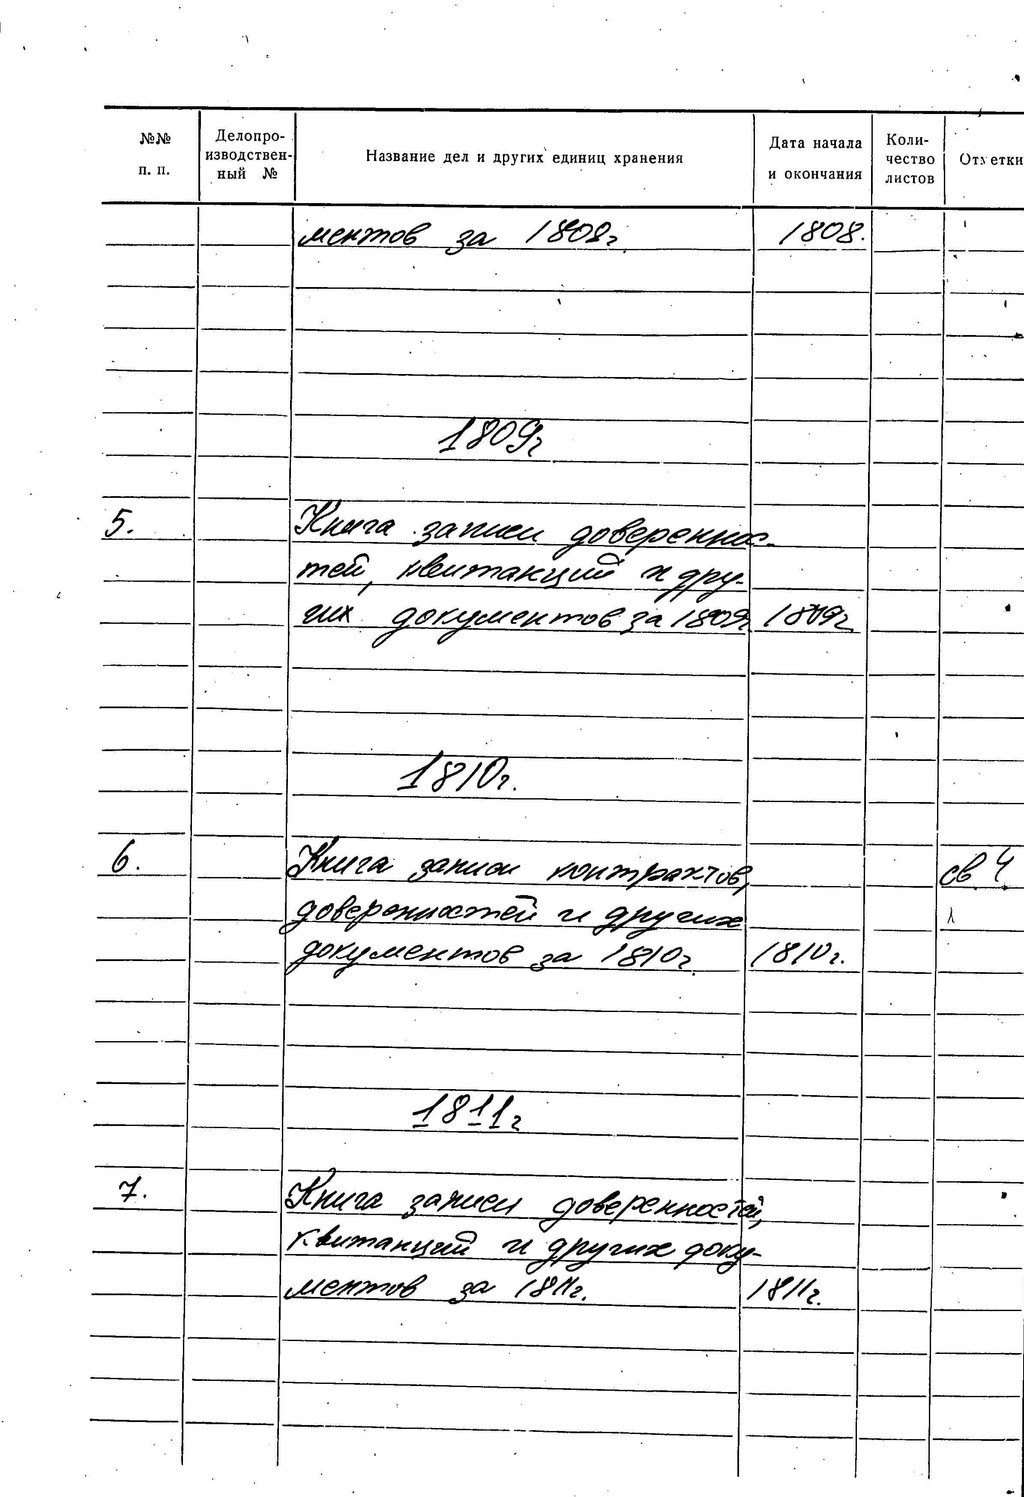 №№ п. п.
Делопроизводственный №
Название дел и других единиц хранения
Дата начала и окончания
Количество листов
Отметки
ментов за 1808г. 1808.
1809г
5. Книга записи доверенно-
стей, квитанций и дру-
гих документов за 1809г 1809г
1810г.
6. Книга записи контрактов, св. 4
доверенностей и других
документов за 1810г. 1810г.
1811г
7. Книга записи доверенностей,
квитанций и других доку-
ментов за 1811г. 1811г.